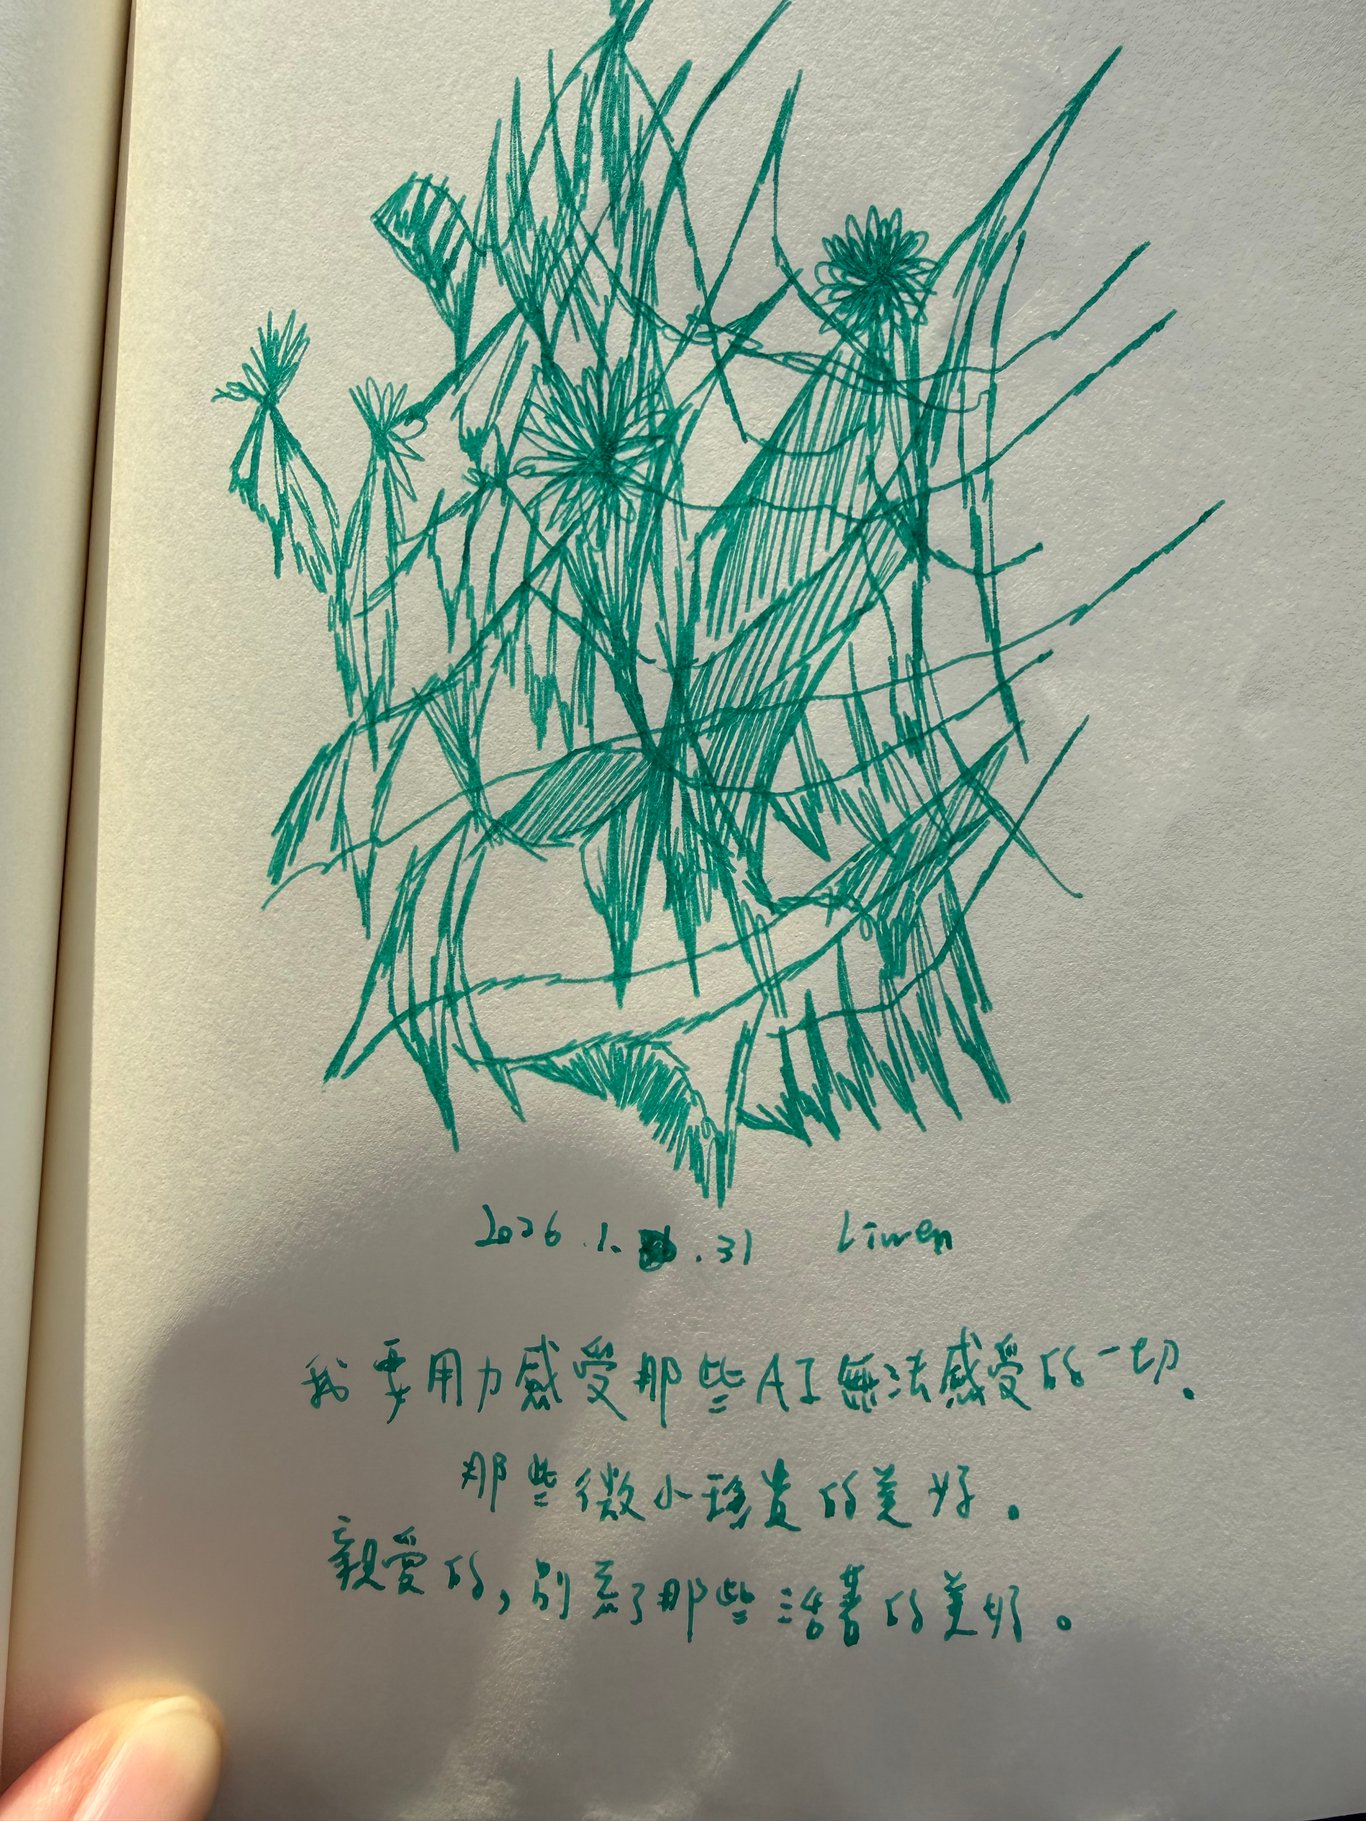 2026.1.31 Liwen
我要用力感受那些AI無法感受的一切.
那些微小珍贵的美好。
親愛的,别忘了那些活着的美好。